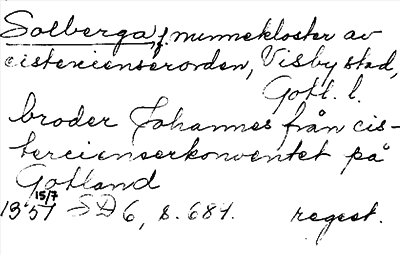 Solberga, f. nunnekloster av
cistercienserorden, Visby stad,
Gotl. l.
broder Johannes från cis-
tercienserkonventet på
Gotland
15/7
1351 SD 6, s. 681. regest.